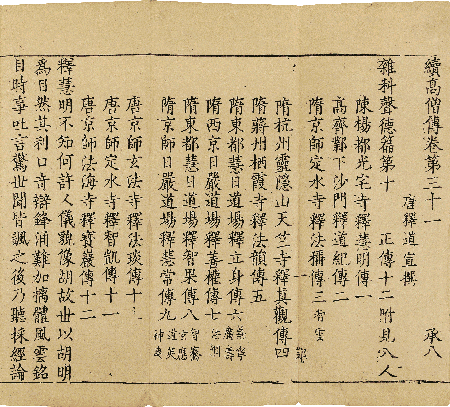 續高僧傳卷第三十一
承八
唐釋道宣撰
雜科聲德篇第十 正傳十二附見八人
陳楊都光宅寺釋慧明傳一
高齊鄴下沙門釋道紀傳二
隋京師定水寺釋法稱傳三 智雲
隋杭州靈隱山天竺寺釋真觀傳四
隋蔣州栖霞寺釋法韻傳五
隋東都慧日道場釋立身傳六
隋西京日嚴道場釋善權傳七
隋東都慧日道場釋智果傳八
隋京師日嚴道場釋慧常傳九
唐京師玄法寺釋法琰傳十
唐京師定水寺釋智凱傳十一
唐京師法海寺釋寶巖傳十二
釋慧明不知何許人儀貌像胡故世以胡明
為目然其利口奇辯鋒涌難加摛體風雲銘
目時事吐言驚世聞皆諷之後乃聽採經論